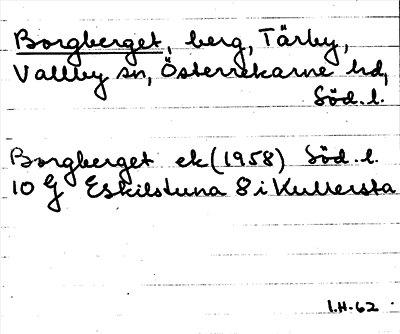 Borgberget, berg, Tärby,
Vallby sn, Österrekarne hd,
Söd. l.
Borgberget ek (1958) Söd. l.
10 G Eskilstuna 8 i Kullersta
I.H-62